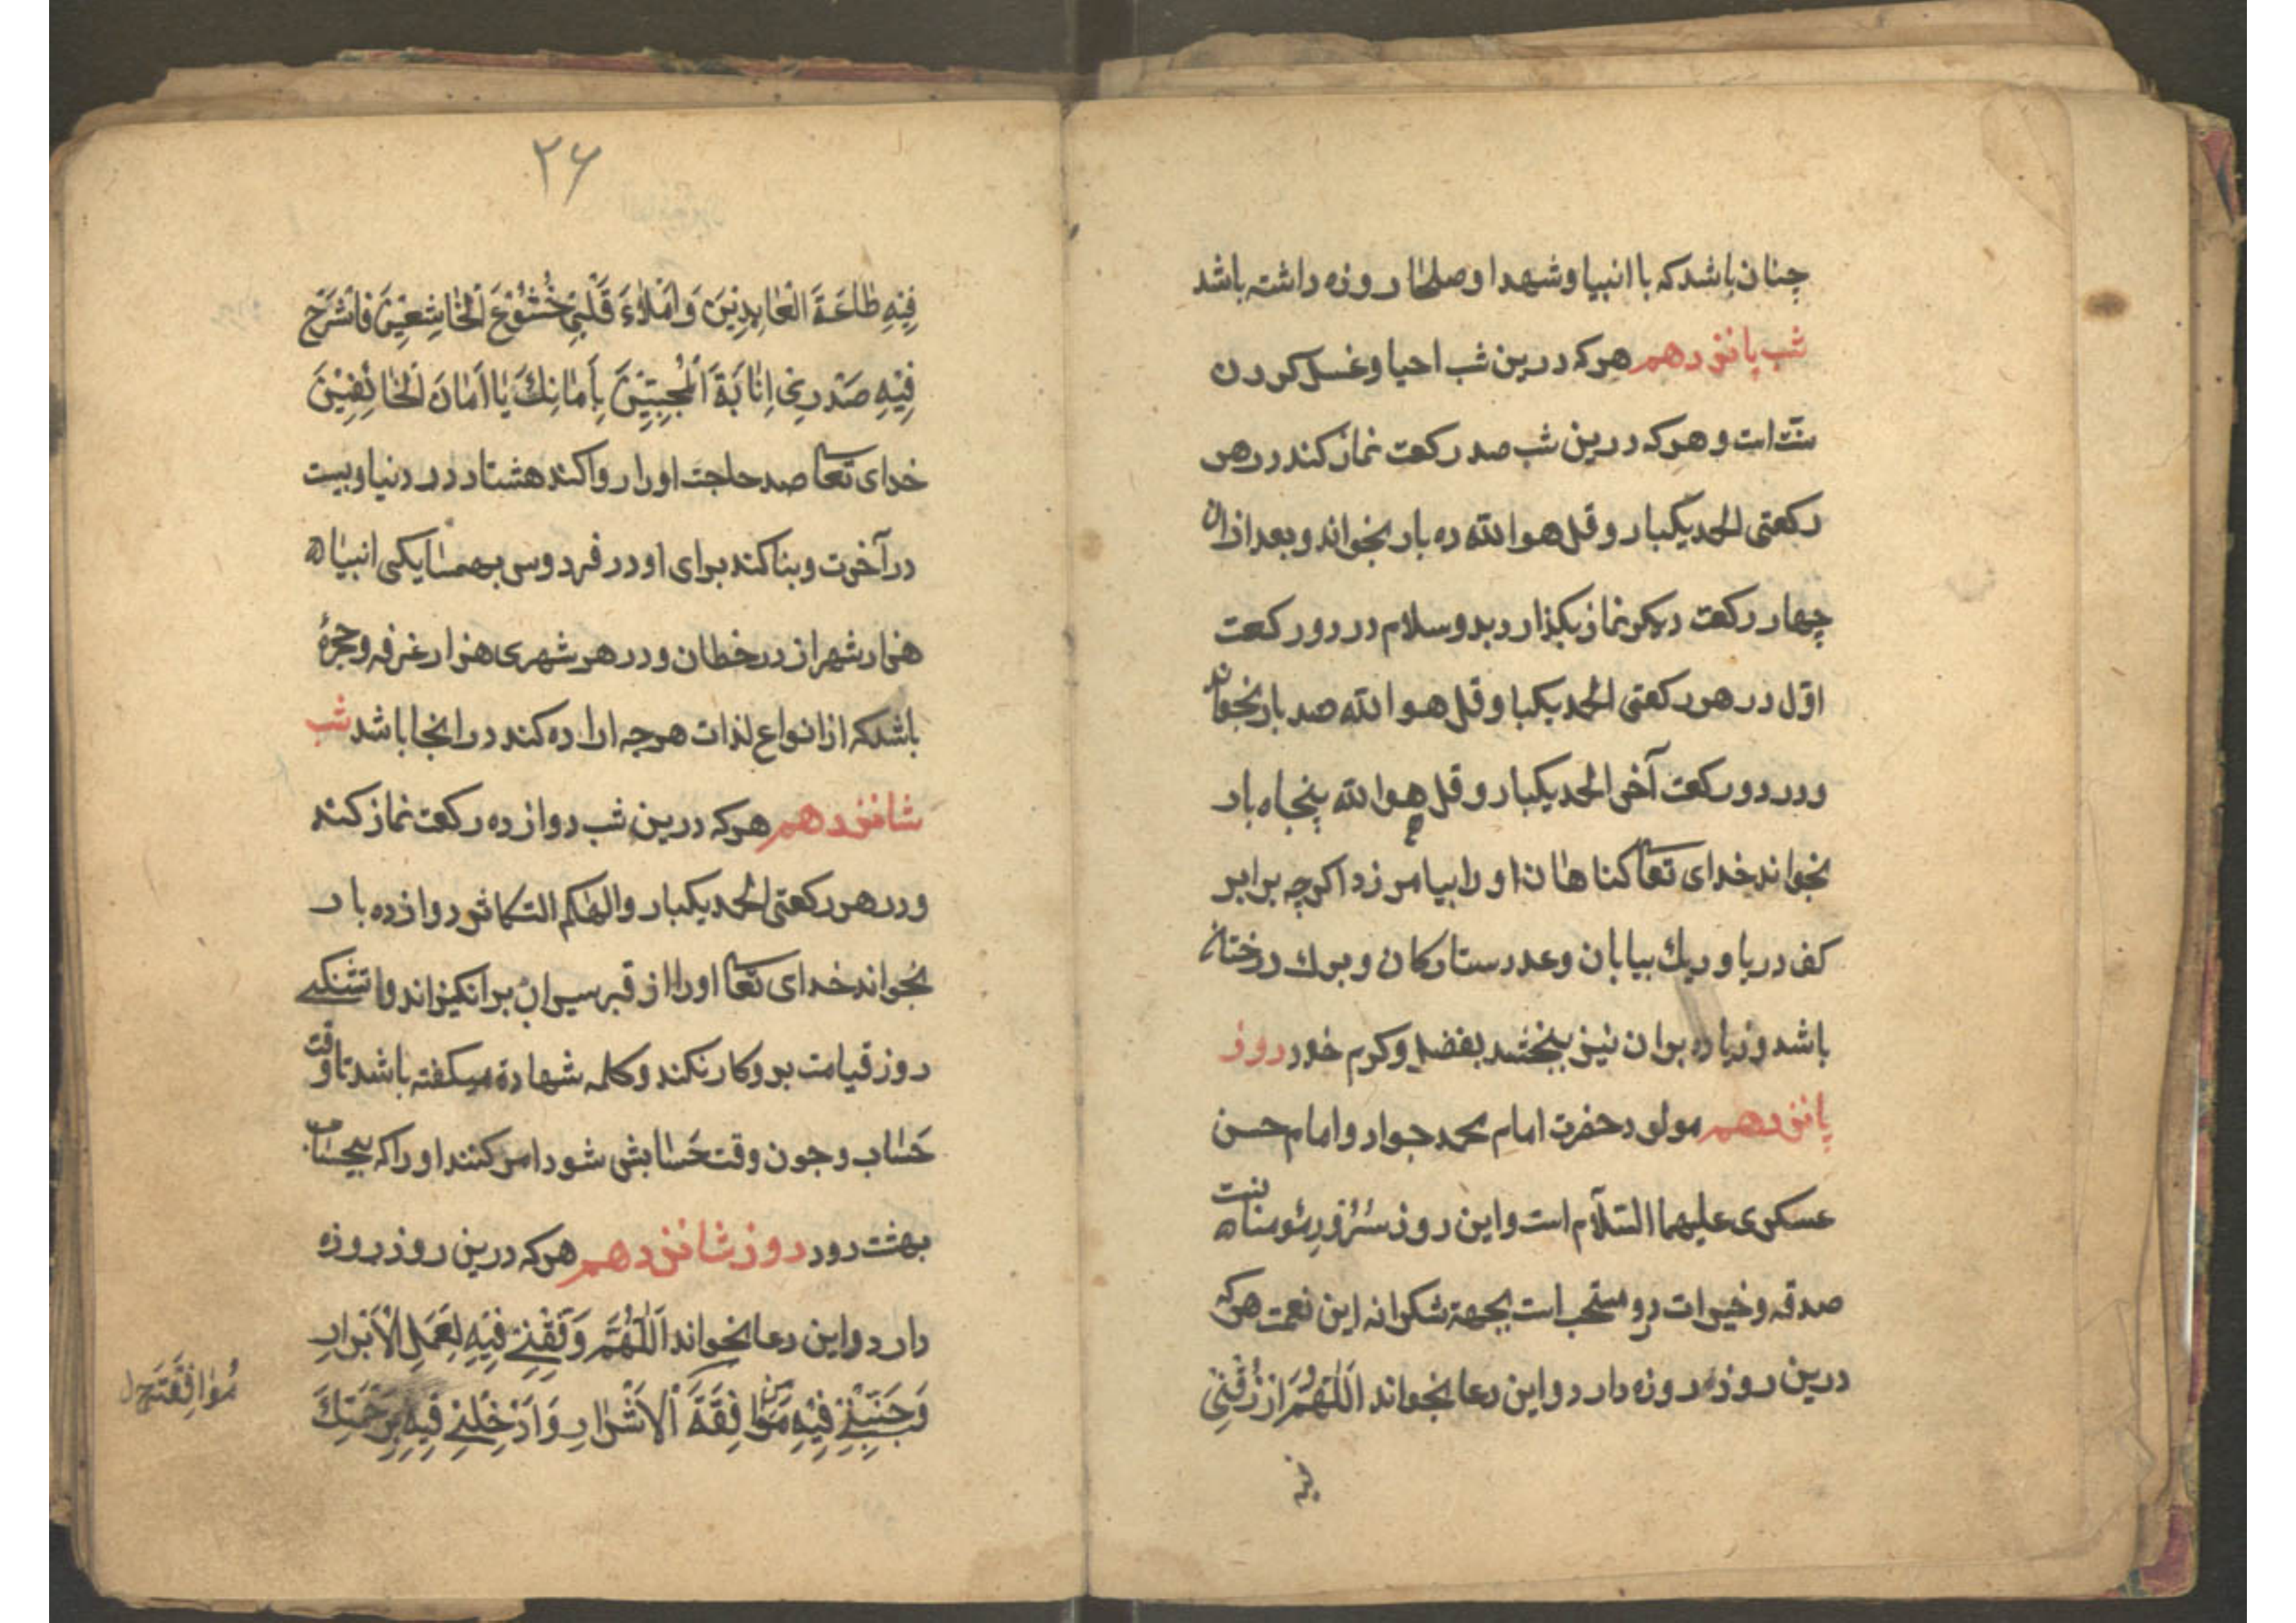 چنان باشد که با انبیا و شهدا و صلحا روزه داشته باشد
شب پانزدهم هرکه درین شب احیا و غسل کردن
سنّت است و هرکه درین شب صد رکعت نماز کند در هر
رکعتی الحمد یکبار و قل هو الله ده بار بخواند و بعد ازان
چهار رکعت دیکر نماز بکذارد بدو سلام در دو رکعت
اوّل در هر رکعتی الحمد یکبا و قل هو الله صد بار بخواند
و در دو رکعت آخر الحمد یکبار و قل هو الله پنجاه بار
بخواند خدای تعا کناهان او را بیامرزد اکرچه برابر
کف دریا و ریك بیابان و عدد ستارکان و برك درختان
باشد و زیاده بران نیز ببخشد بفضل و کرم خود روز
پانزدهم مولود حضرت امام محمد جواد و امام حسن
عسکری علیهما السّلام است و این روز سُرُور مؤمنانست
صدقه و خیرات درو مستحب است بجهة شکرانه این نعمت هرکه
درین روزه روزه دارد و این دعا بخواند اَللّٰهُمَّ ارْزُقْنِی
فیه
۲۶
فِیْهِ طَاعَةَ الْعَابِدِیْنَ وَامْلَاءَ قَلْبِیْ خُشُوْعَ الْخَاشِعِیْنَ فَاشْرَحْ
فِیْهِ صَدْرِیْ اِنَابَةَ الْمُخْبِتِیْنَ بِأَمَانِكَ یَا اَمَانَ الْخَائِفِیْنَ
خدای تعا صد حاجت او را روا کند هشتاد در دنیا و بیست
در آخرت و بنا کند برای او در فردوس بهمسایکی انبیا
هزار شهر از در خطان و در هر شهری هزار غرفه و حجرهٔ
باشد که از انواع لذات هرچه اراده کند در انجا باشد شب
شانزدهم هرکه درین شب دوازده رکعت نماز کند
و در هر رکعتی الحمد یکبار و الهٰکم التکاثر دوازده بار
بخواند خدای تعا او را از قبر سیراب برانکیزاند و اتشنکی
روز قیامت برو کار نکند و کلمه شهادة میکفته باشد تا وقت
حَساب و چون وقت حَسابش شود امر کنند او را که بیحساب
بهشت رود روز شانزدهم هرکه درین روز روزه
دارد و این دعا بخواند اَللّٰهُمَّ وَفِّقْنِیْ فِیْهِ لِعَمَلِ الْاَبْرَارِ
وَجَنِّبْنِیْ فِیْهِ مَوَافِقَةَ الْاَشْرَارِ وَادْخِلْنِیْ فِیْهِ بِرَحْمَتِكَ
مُوَافِقَتِ